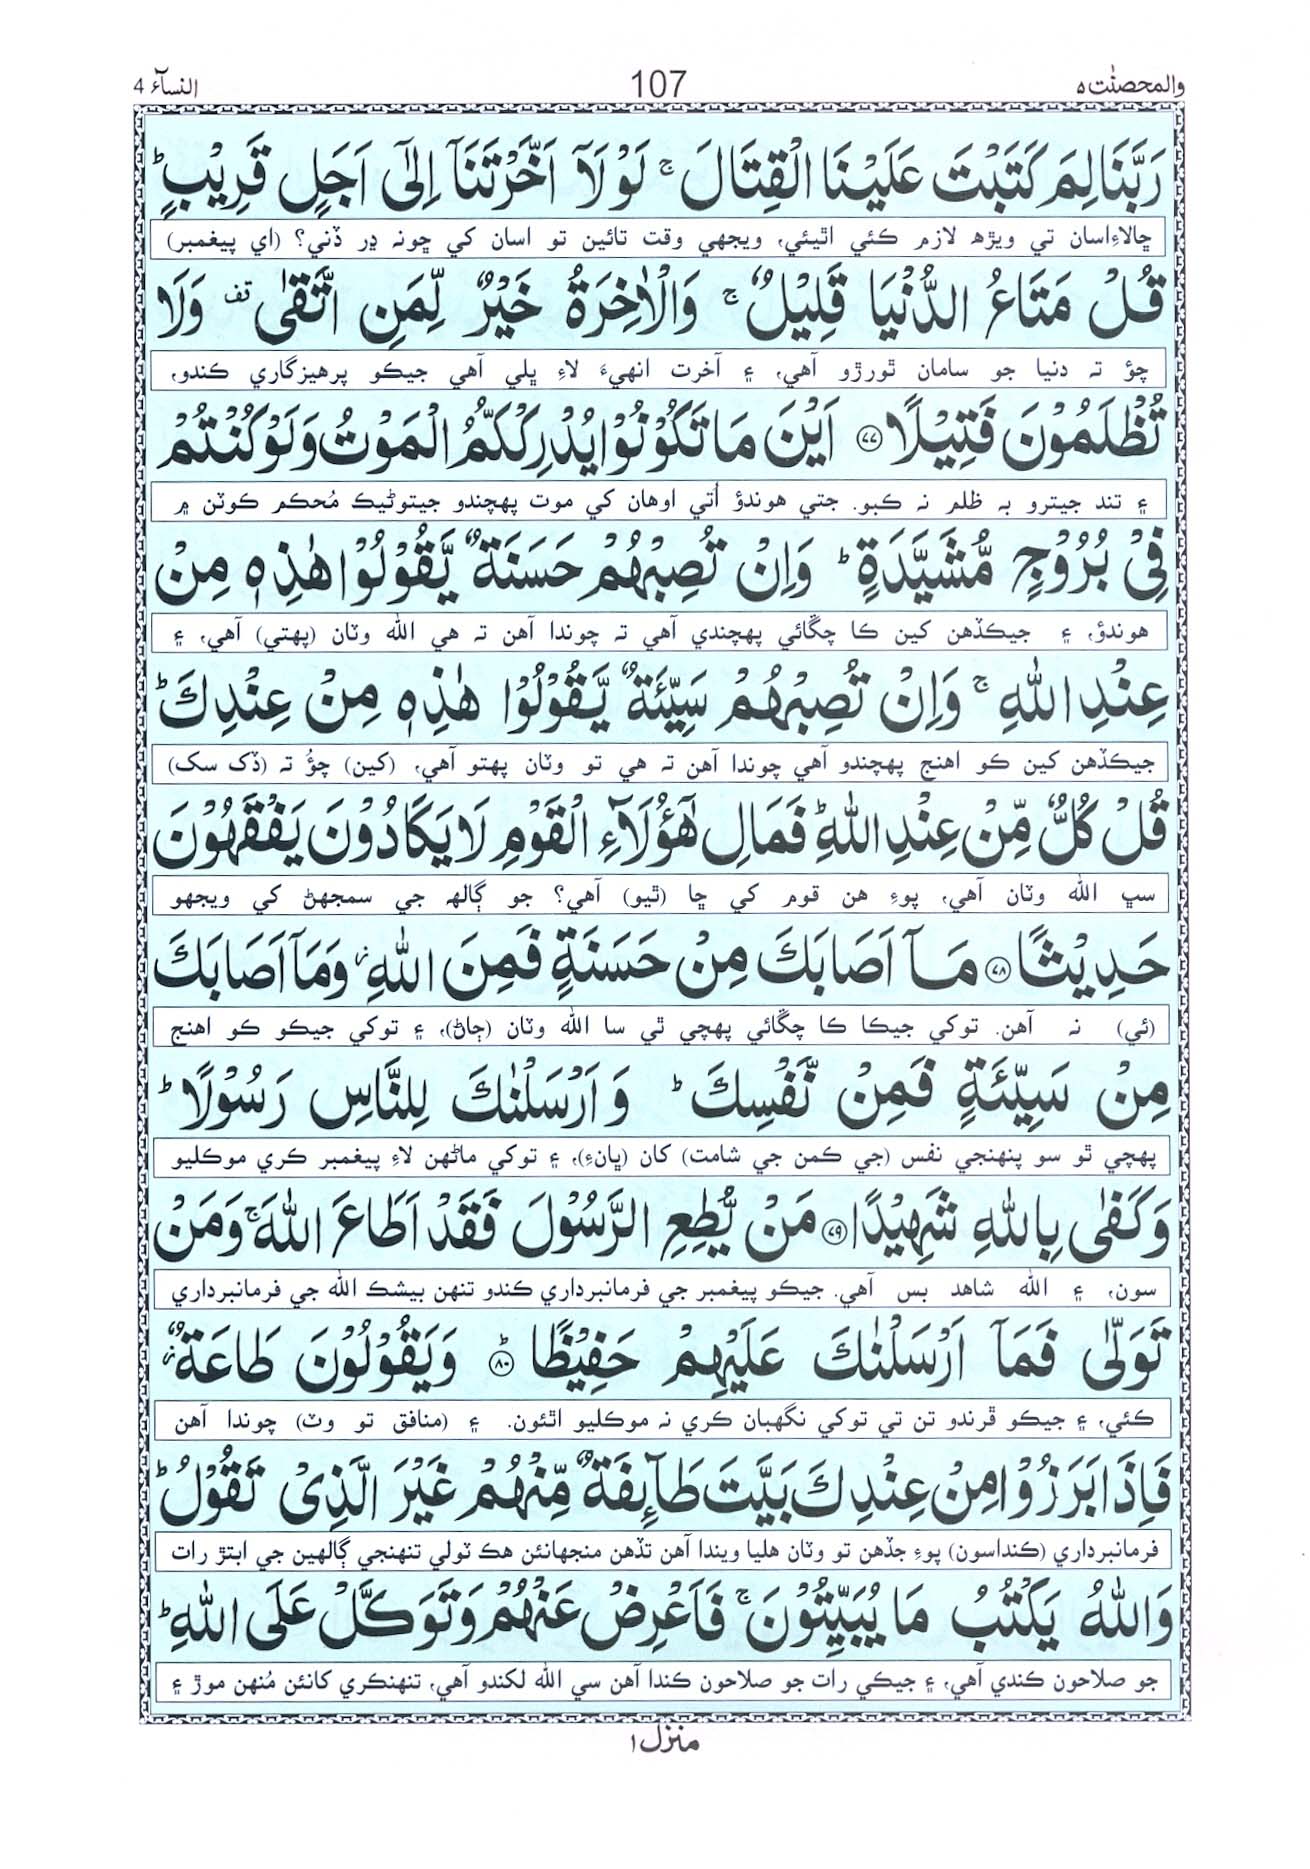 والمحصنٰت ٥
107
النسآء 4
رَبَّنَا لِمَ كَتَبْتَ عَلَيْنَا الْقِتَالَ ۚ لَوْلَآ اَخَّرْتَنَآ اِلٰٓى اَجَلٍ قَرِيْبٍ ؕ
ڇالاءِ اسان تي ويڙهہ لازم ڪئي اٿيئي، ويجهي وقت تائين تو اسان کي ڇونہ ڍر ڏني؟ (اي پيغمبر)
قُلْ مَتَاعُ الدُّنْيَا قَلِيْلٌ ۚ وَالْاٰخِرَةُ خَيْرٌ لِّمَنِ اتَّقٰى ۫ قف وَلَا
چؤ تہ دنيا جو سامان ٿورڙو آهي، ۽ آخرت انهيءَ لاءِ ڀلي آهي جيڪو پرهيزگاري ڪندو،
تُظْلَمُوْنَ فَتِيْلًا ﴿۷۷﴾ اَيْنَ مَا تَكُوْنُوْا يُدْرِكْكُّمُ الْمَوْتُ وَلَوْ كُنْتُمْ
۽ تند جيترو بہ ظلم نہ ڪبو. جتي هوندؤ اُتي اوهان کي موت پهچندو جيتوڻيڪ مُحڪم ڪوٽن ۾
فِيْ بُرُوْجٍ مُّشَيَّدَةٍ ؕ وَاِنْ تُصِبْهُمْ حَسَنَةٌ يَّقُوْلُوْا هٰذِهٖ مِنْ
هوندؤ، ۽ جيڪڏهن کين ڪا چڱائي پهچندي آهي تہ چوندا آهن تہ هي الله وٽان (پهتي) آهي، ۽
عِنْدِ اللّٰهِ ۚ وَاِنْ تُصِبْهُمْ سَيِّئَةٌ يَّقُوْلُوْا هٰذِهٖ مِنْ عِنْدِكَ ؕ
جيڪڏهن کين ڪو اهنج پهچندو آهي چوندا آهن تہ هي تو وٽان پهتو آهي، (کين) چؤُ تہ (ڏک سک)
قُلْ كُلٌّ مِّنْ عِنْدِ اللّٰهِ ؕ فَمَالِ هٰٓؤُلَآءِ الْقَوْمِ لَا يَكَادُوْنَ يَفْقَهُوْنَ
سڀ الله وٽان آهي، پوءِ هن قوم کي ڇا (ٿيو) آهي؟ جو ڳالهہ جي سمجهڻ کي ويجهو
حَدِيْثًا ﴿۷۸﴾ مَآ اَصَابَكَ مِنْ حَسَنَةٍ فَمِنَ اللّٰهِ ؗ وَمَآ اَصَابَكَ
(ئي) نہ آهن. توکي جيڪا ڪا چڱائي پهچي ٿي سا الله وٽان (ڄاڻ)، ۽ توکي جيڪو ڪو اهنج
مِنْ سَيِّئَةٍ فَمِنْ نَّفْسِكَ ؕ وَاَرْسَلْنٰكَ لِلنَّاسِ رَسُوْلًا ؕ
پهچي ٿو سو پنهنجي نفس (جي ڪمن جي شامت) کان (ڀانءِ)، ۽ توکي ماڻهن لاءِ پيغمبر ڪري موڪليو
وَكَفٰى بِاللّٰهِ شَهِيْدًا ﴿۷۹﴾ مَنْ يُّطِعِ الرَّسُوْلَ فَقَدْ اَطَاعَ اللّٰهَ ۚ وَمَنْ
سون، ۽ الله شاهد بس آهي. جيڪو پيغمبر جي فرمانبرداري ڪندو تنهن بيشڪ الله جي فرمانبرداري
تَوَلّٰى فَمَآ اَرْسَلْنٰكَ عَلَيْهِمْ حَفِيْظًا ﴿۸۰﴾ؕ وَيَقُوْلُوْنَ طَاعَةٌ ؗ
ڪئي، ۽ جيڪو ڦرندو تن تي توکي نگهبان ڪري نہ موڪليو اٿئون. ۽ (منافق تو وٽ) چوندا آهن
فَاِذَا بَرَزُوْا مِنْ عِنْدِكَ بَيَّتَ طَآئِفَةٌ مِّنْهُمْ غَيْرَ الَّذِيْ تَقُوْلُ ؕ
فرمانبرداري (ڪنداسون) پوءِ جڏهن تو وٽان هليا ويندا آهن تڏهن منجهانئن هڪ ٽولي تنهنجي ڳالهين جي ابتڙ رات
وَاللّٰهُ يَكْتُبُ مَا يُبَيِّتُوْنَ ۚ فَاَعْرِضْ عَنْهُمْ وَتَوَكَّلْ عَلَى اللّٰهِ ؕ
جو صلاحون ڪندي آهي، ۽ جيڪي رات جو صلاحون ڪندا آهن سي الله لکندو آهي، تنهنڪري کانئن مُنهن موڙ ۽
منزل ۱